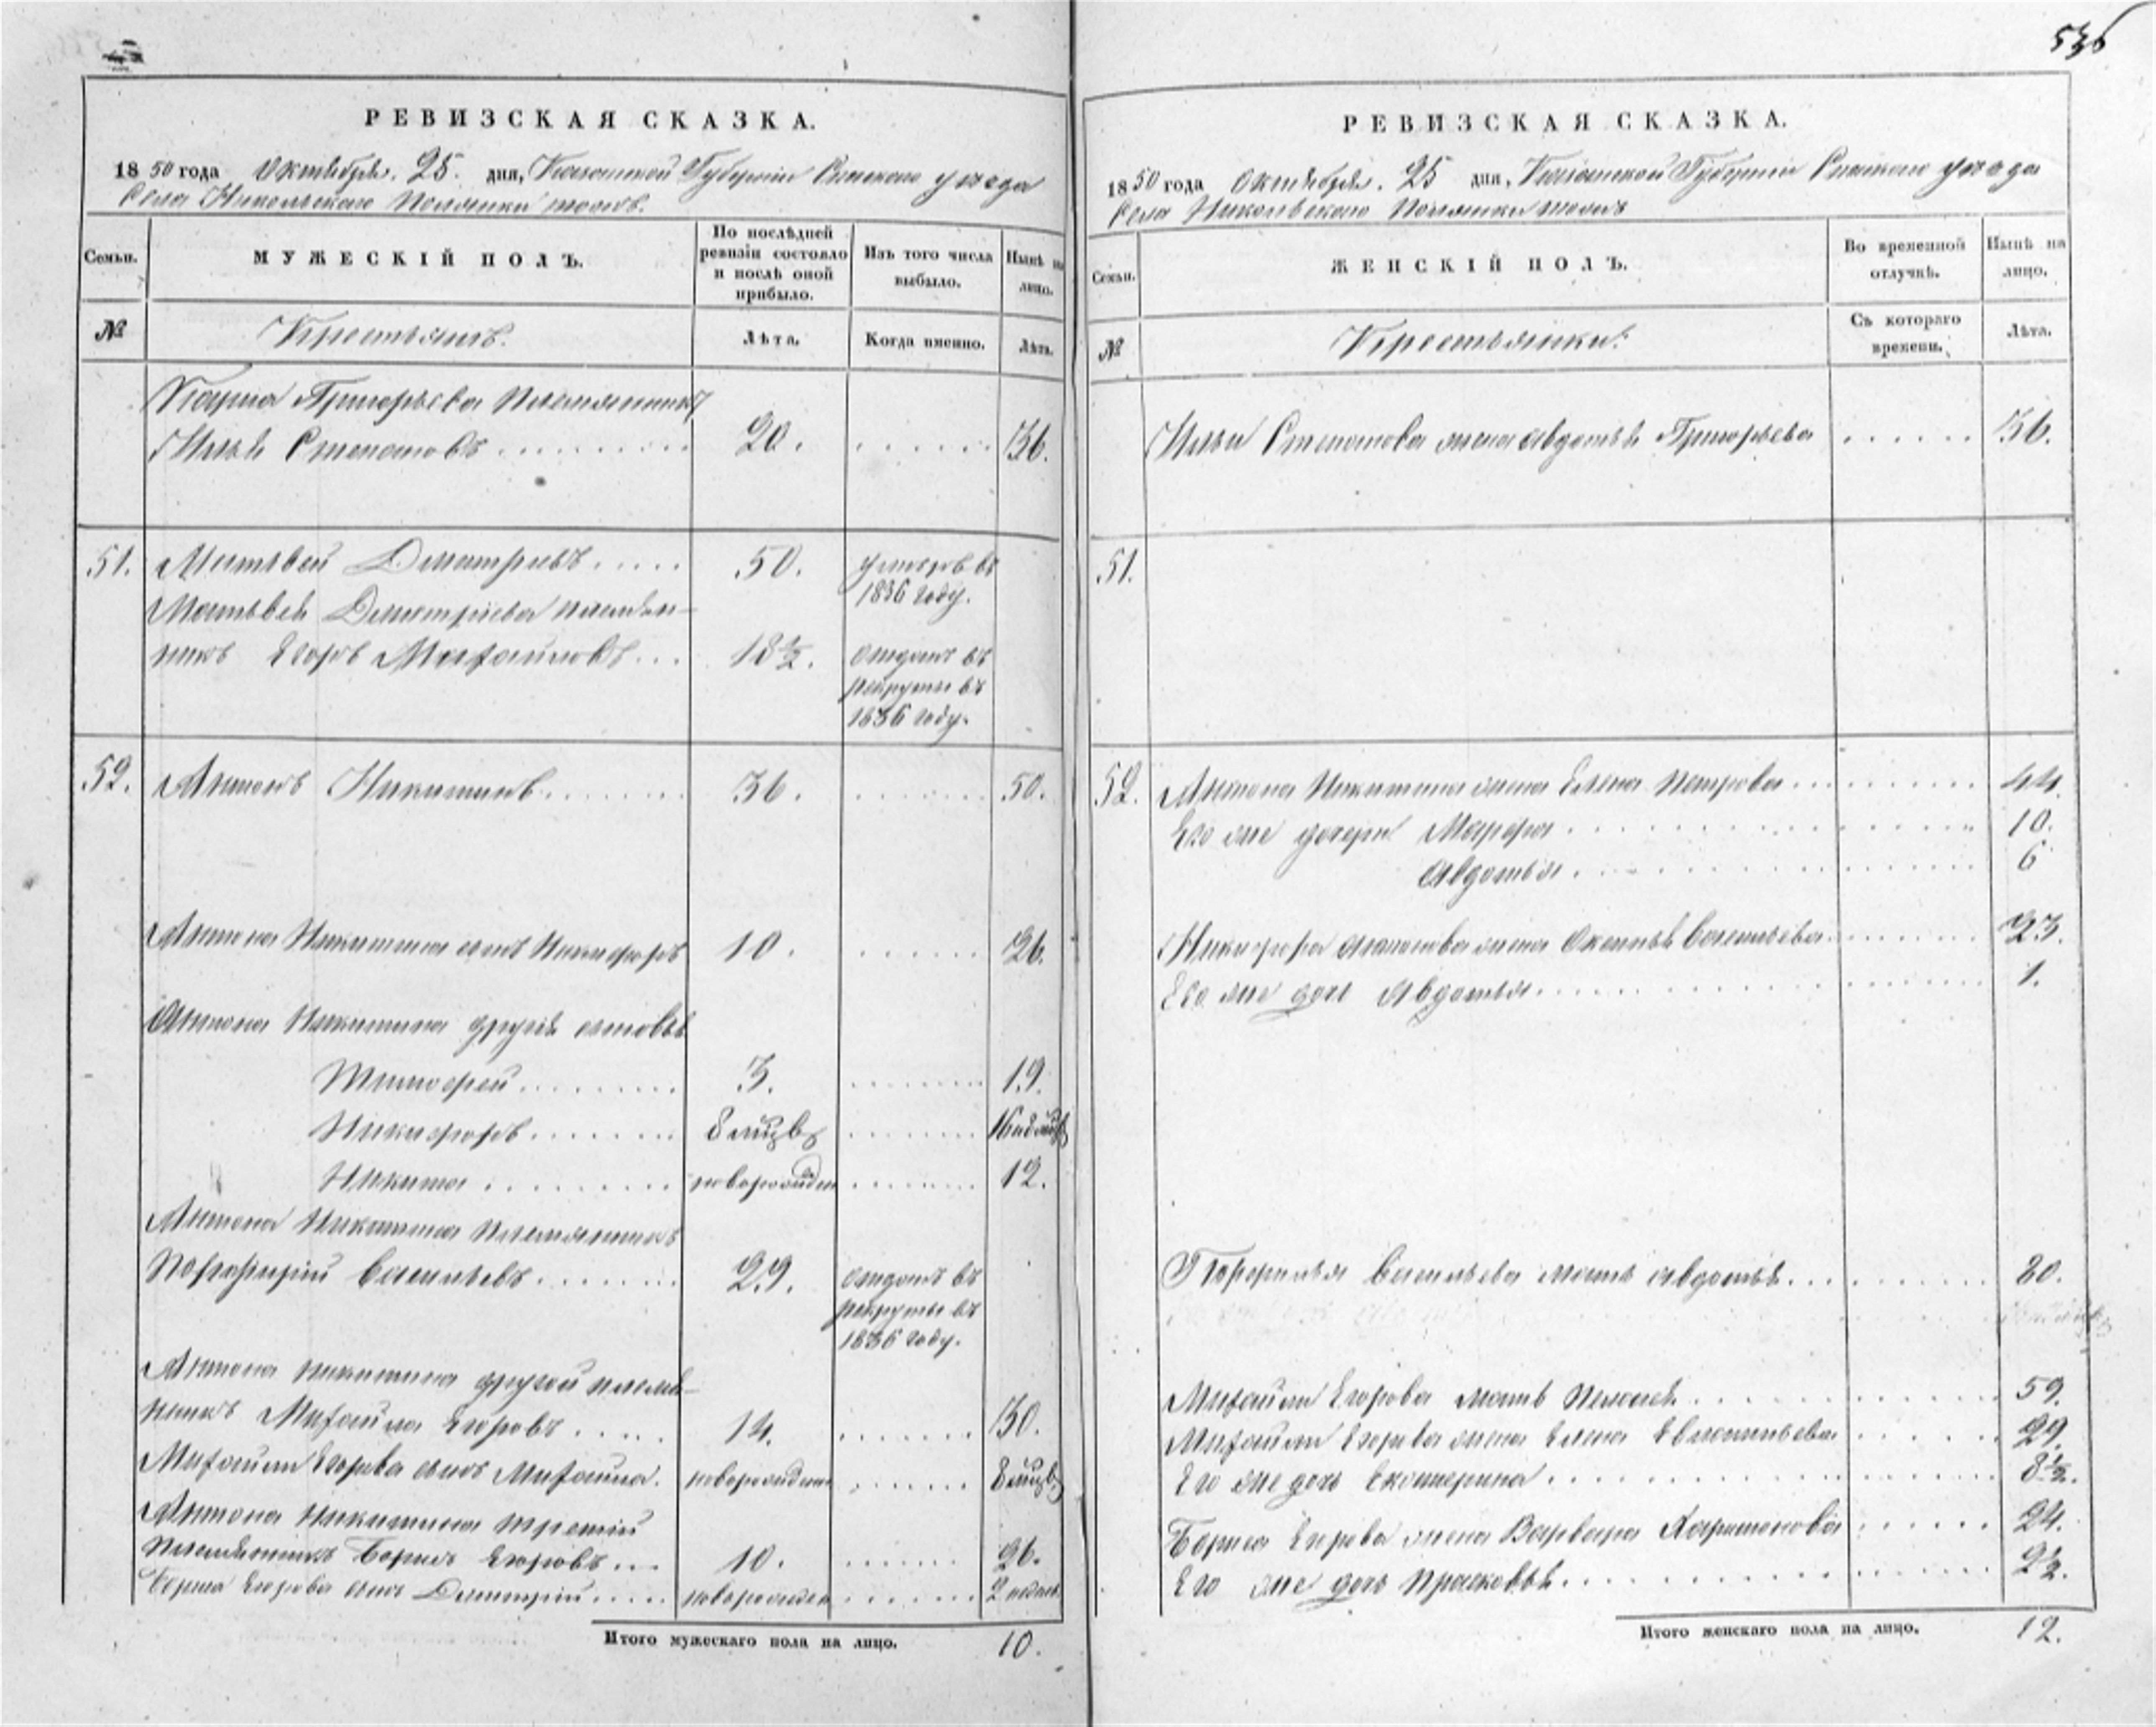 536
РЕВИЗСКАЯ СКАЗКА.
1850 года Октября. 25. дня, Казанской Губернiи Спаскаго уезда
Села Никольскаго Полянки тожъ.
Семьи.
МУЖЕСКIЙ ПОЛЪ.
По послѣдней ревизiи состояло и послѣ оной прибыло.
Изъ того числа выбыло.
Нынѣ на лицо.
№
Крестьянъ.
Лѣта.
Когда именно.
Лѣта.
Григорьева племянникъ
Илья Степановъ 20. 36.
51. Матвей Дмитрiевъ 50. умеръ въ 1836 году.
Матвея Дмитрiева племян-
никъ Егоръ Михайловъ 18½. отданъ въ рекруты въ 1836 году.
52. Антонъ Никитинъ 36. 50.
Антона Никитина сынъ Никифоръ 10. 26.
Антона Никитина другiя сыновья
Тимофей 3. 19.
Никифоръ 8 мцвъ
Никита новорожден 12.
Антона Никитина племянникъ
Порфирiй Васильевъ 29. отданъ въ рекруты въ 1836 году.
Антона Никитина другой племя-
никъ Михайла Егоровъ 14. 30.
Михайлы Егорова сынъ Михайла. новорожден 8 мцвъ
Антона Никитина третiй
племянникъ Борисъ Егоровъ 10. 26.
Бориса Егорова сынъ Дмитрiй новорожден 2 недель
Итого мужескаго пола на лицо. 10.
РЕВИЗСКАЯ СКАЗКА.
1850 года Октября. 25 дня, Казанской Губернiи Спаскаго уезда
Села Никольскаго Полянки тожъ
Семьи.
ЖЕНСКIЙ ПОЛЪ.
Во временной отлучкѣ.
Нынѣ на лицо.
№
Крестьянки.
Съ котораго времени.
Лѣта.
Ильи Степанова жена Авдотья Григорьева 36.
51.
52. Антона Никитина жена Елена Петрова 44.
Его же дочери Марфа 10.
Авдотья 6
Никифора Антонова жена Аксинья Васильева 23.
Его же дочь Авдотья 1.
Васильева мать Авдотья 80.
Михайлы Егорова мать Пелагея 59.
Михайлы Егорова жена Елена 29.
Его же дочь Екатерина 8½.
Бориса Егорова жена Варвара Харитонова 24.
Его же дочь Прасковья 2½.
Итого женскаго пола на лицо. 12.